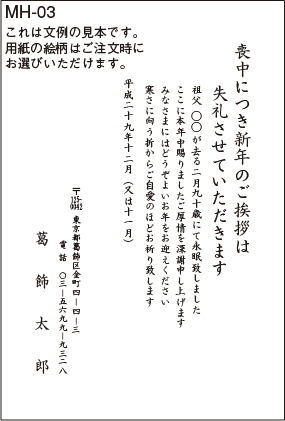 MH-03
これは文例の見本です。
用紙の絵柄はご注文時に
お選びいただけます。
喪中につき新年のご挨拶は
失礼させていただきます
祖父 〇〇が去る二月九十歳にて永眠致しました
ここに本年中賜りましたご厚情を深謝申し上げます
みなさまにはどうぞよいお年をお迎えください
寒さに向う折からご自愛のほどお祈り致します
平成二十九年十二月（又は十一月）
〒125-0042 東京都葛飾区金町四―四―三
電話 〇三―五六九九―九三二八
葛飾太郎